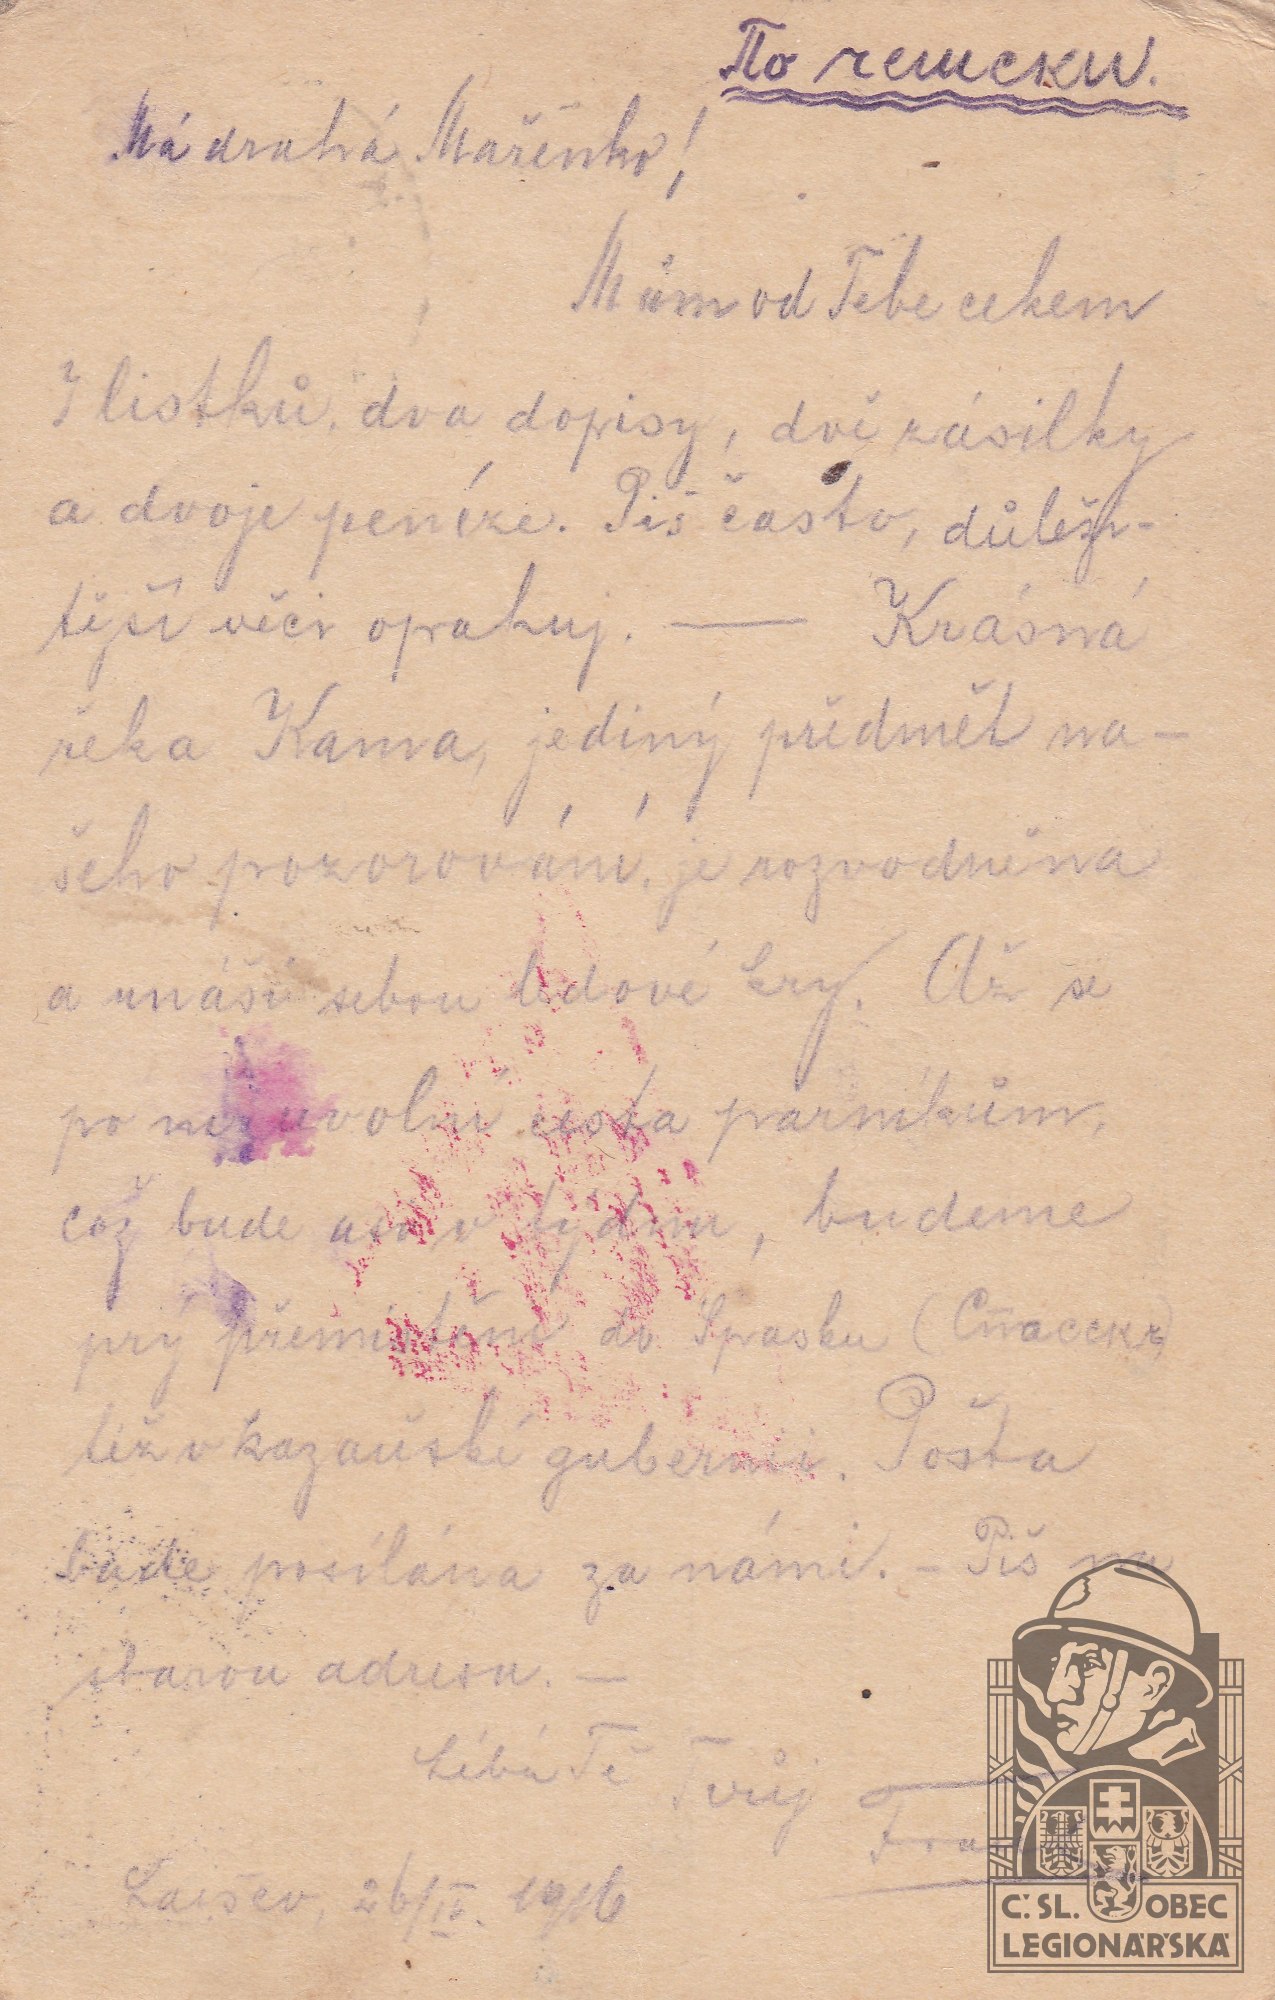 По чешски.
Má drahá Mařenko!
Mám od Tebe celkem
7 lístků, dva dopisy, dvě zásilky
a dvoje peníze. Piš často, důleži-
tější věci opakuj. — Krásná
řeka Kama, jediný předmět na-
šeho pozorování, je rozvodněna
a unáší sebou ledové kry. Až se
po ní uvolní cesta parníkům,
což bude asi v týdnu, budeme
prý přemístěni do Spasku (Спасскъ)
též v kazaňské gubernii. Pošta
bude posílána za námi. — Piš na
starou adresu. —
Líbá Tě Tvůj
Laišev, 26/IV. 1916
Č. SL. OBEC
LEGIONÁŘSKÁ